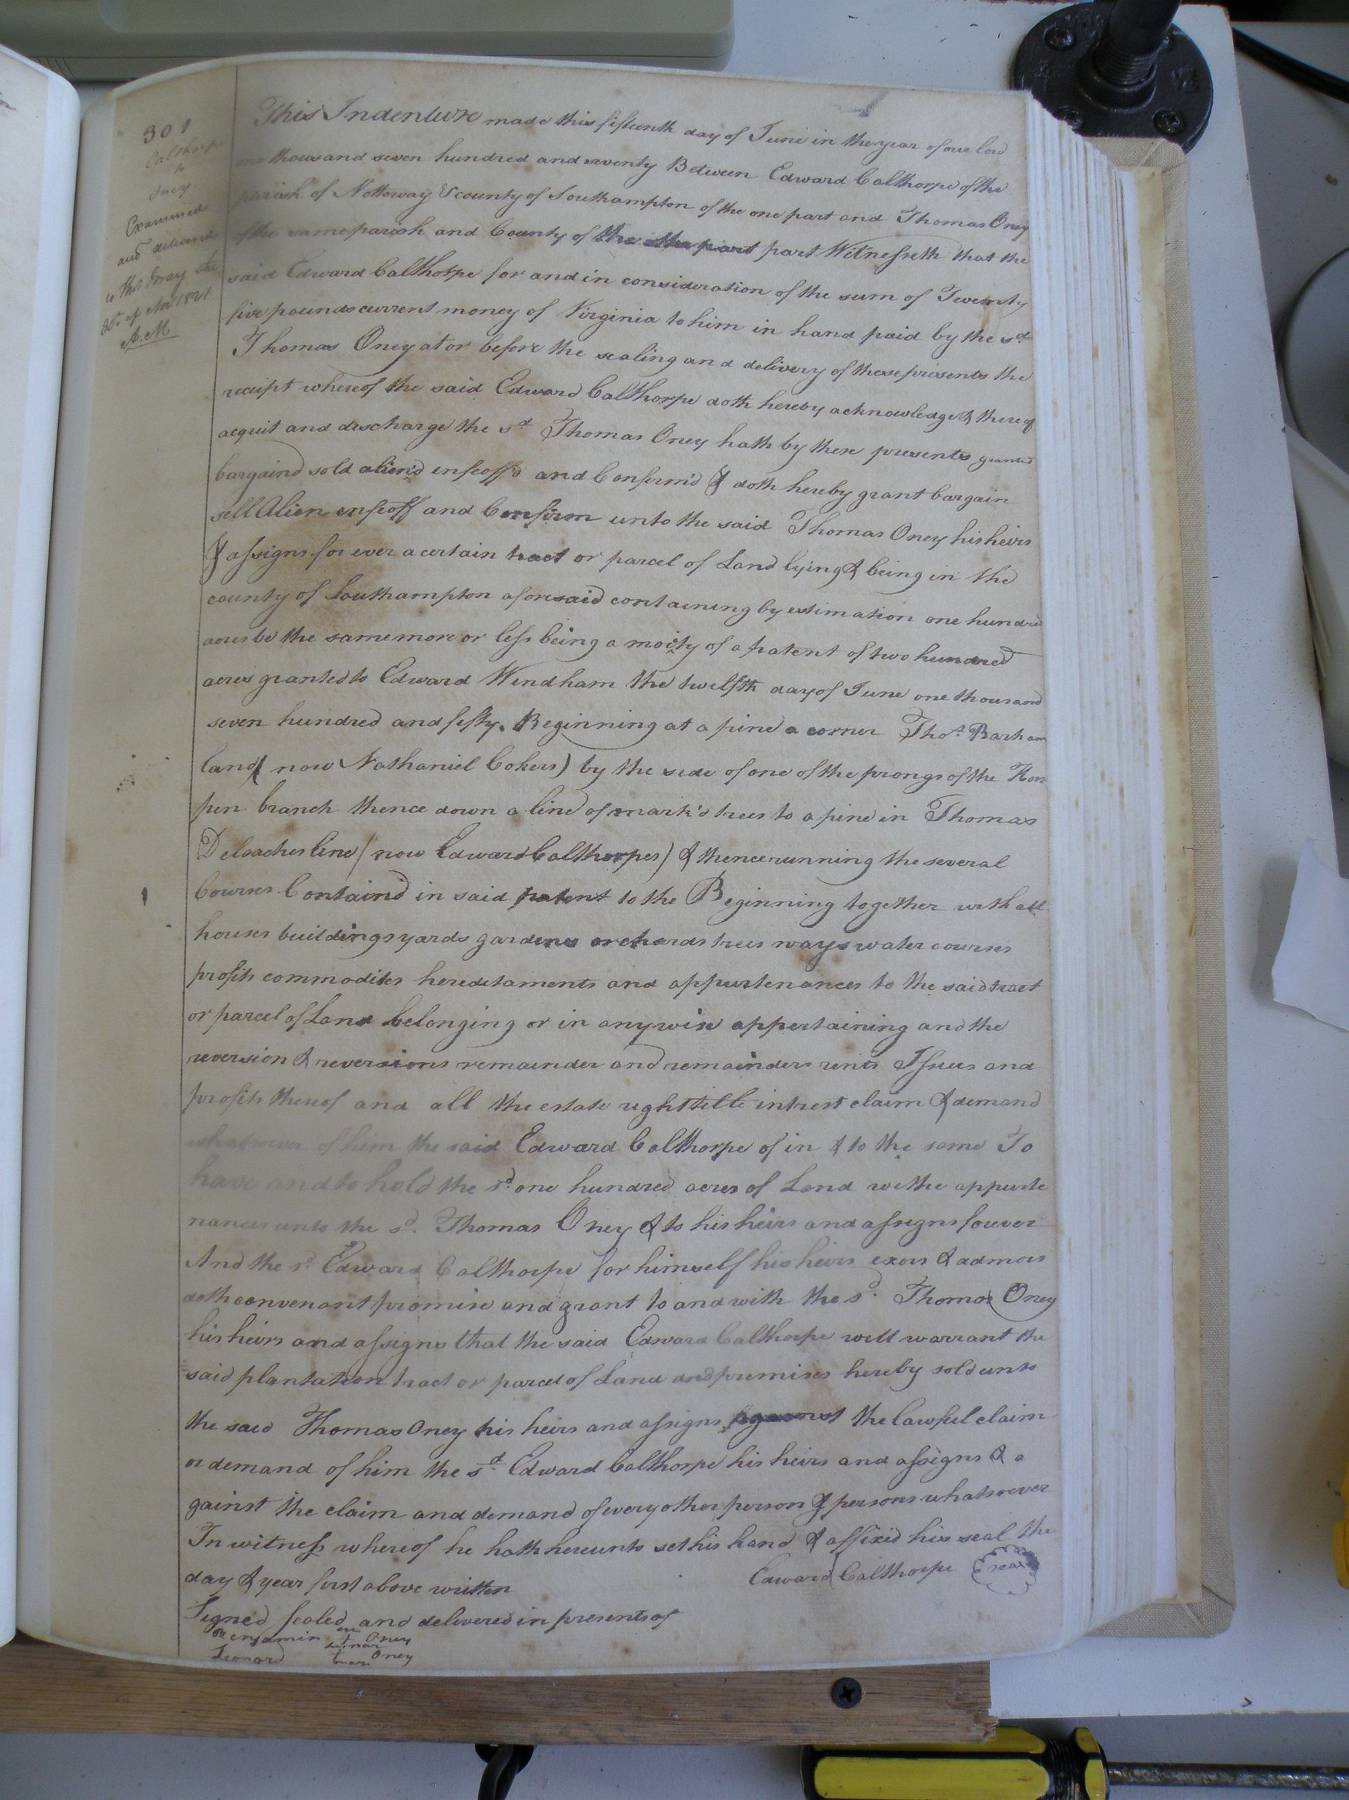 301
Calthorpe
to
Examined
and delivered
to this Gray the
of Novr 1821
A.M
This Indenture made this fifteenth day of June in the year of our lord
one thousand seven hundred and seventy Between Edward Calthorpe of the
parish of Nottoway & county of Southampton of the one part and Thomas Oney
of the same parish and County of the other part part Witnesseth that the
said Edward Calthorpe for and in consideration of the sum of Twenty
five pounds current money of Virginia to him in hand paid by the sd
Thomas Oney at or before the sealing and delivery of these presents the
receipt whereof the said Edward Calthorpe doth hereby acknowledge & thereof
acquit and discharge the sd Thomas Oney hath by these presents granted
bargaind sold aliend enfeoff'd and Confirm'd & doth hereby grant bargain
sell Alien enfeoff and Confirm unto the said Thomas Oney his heirs
& assigns for ever a certain tract or parcel of Land lying & being in the
county of Southampton aforesaid containing by estimation one hundred
acres be the same more or less being a moity of a patent of two hundred
acres granted to Edward Windham the twelfth day of June one thousand
seven hundred and fifty. Beginning at a pine a corner Thos. Barham
land (now Nathaniel Cokers) by the side of one of the prongs of the Hor
pen branch thence down a line of mark'd trees to a pine in Thomas
Deloaches line (now Edward Calthorpes) & thence running the several
Courses Containd in said patent to the Beginning together with all
houses buildings yards gardens orchards trees ways water courses
profits commodites hereditaments and appurtenances to the said tract
or parcel of Land belonging or in anywise appertaining and the
reversion & reversions remainder and remainders rents Issues and
profits thereof and all the estate right title intrest claim & demand
whatsoever of him the said Edward Calthorpe of in & to the same To
have and to hold the sd. one hundred acres of Land withe appurte
nances unto the sd. Thomas Oney & to his heirs and assigns forever
And the sd. Edward Calthorpe for himself his heirs exors & admors
doth convenant promise and grant to and with the sd. Thomas Oney
his heirs and assigns that the said Edward Calthorpe will warrant the
said plantation tract or parcel of Land and premises hereby sold unto
the said Thomas Oney his heirs and assigns against the lawful claim
or demand of him the sd. Edward Calthorpe his heirs and assigns & a
gainst the claim and demand of every other person & persons whatsoever
In witness whereof he hath hereunto set his hand & affixed his seal the
day & year first above written Edward Calthorpe seal
Signed Sealed and delivered in presents of
Benjamin Oney
Leonard Oney